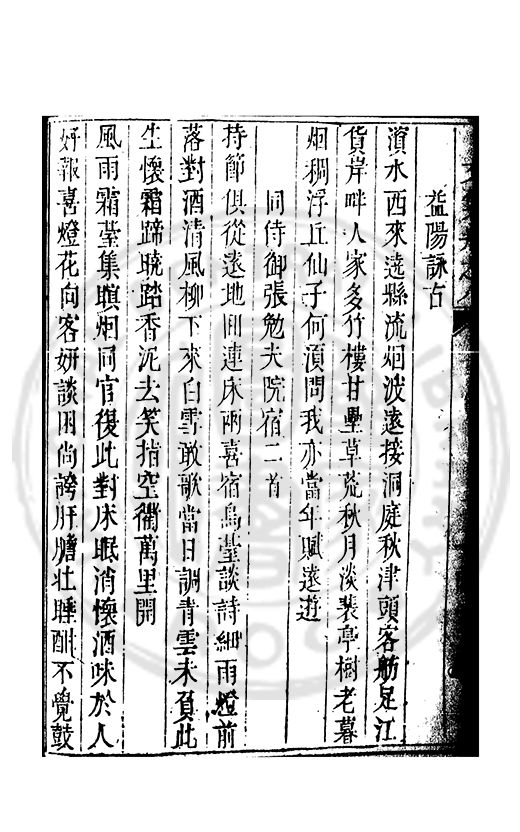 益陽詠古
濱水西來遶縣流烟波遠接洞庭秋津頭客舫足江
貨岸畔人家多竹樓甘壘草荒秋月淡裴亭樹老暮
烟稠浮丘仙子何湏問我亦當年賦遠遊
同侍御張勉夫院宿二首
持節俱從遠地回連床雨喜宿烏臺談詩細雨燈前
落對酒清風柳下來白雪敢歌當日調青雲未負此
生懷霜蹄曉踏香泥去笑指空衢萬里開
風雨霜臺集暝烟同官復此對床眠消懷酒味於人
好報喜燈花向客妍談困尚誇肝膽壯睡酣不覺鼓